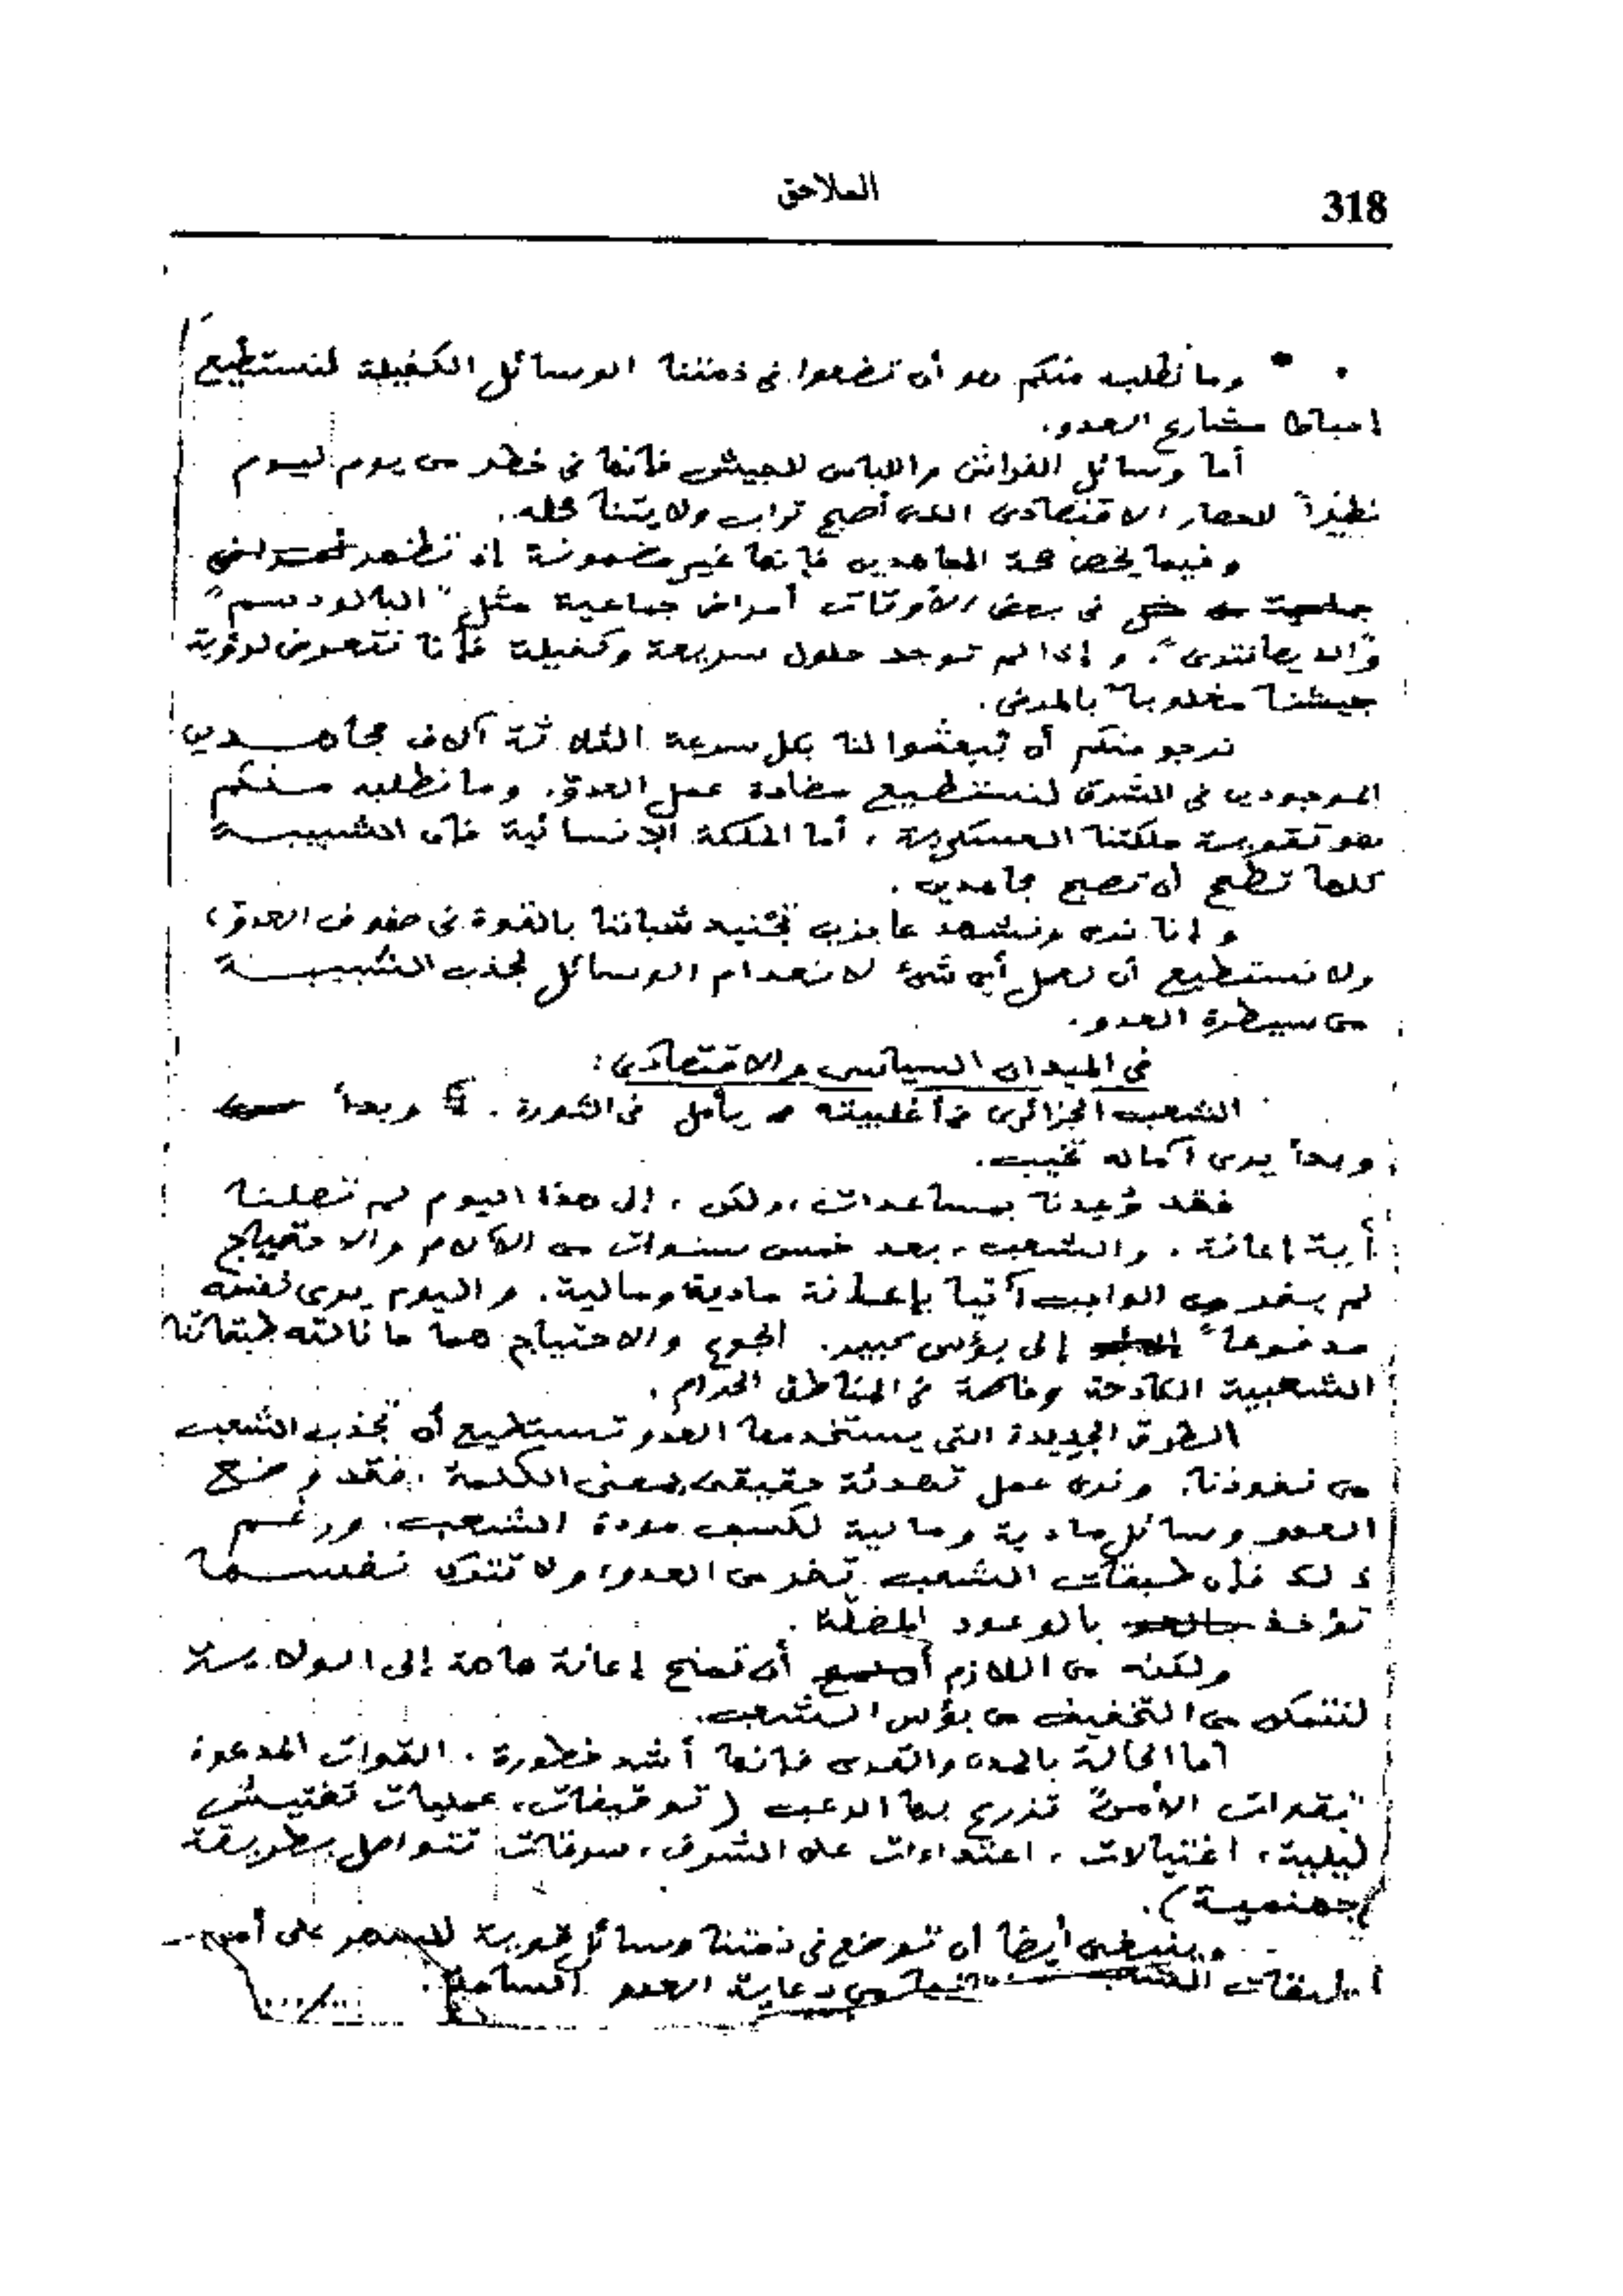 318
الملاحق
وما نطلبه منكم هو أن تضعوا في ذمتنا الوسائل الكفيلة لنستطيع
إحباط مشارع العدو.
أما وسائل الفراش واللباس للجيش فانها في خطر من يوم ليوم
نظراً للحصار الاقتصادي الذي أصبح تراب ولايتنا محله.
وفيما يخص صحة المجاهدين فإنها غير مضمونة إذ تظهر
في بعض الأوقات أمراض جماعية مثل "البالوديسم"
و"الديصانتري". وإذا لم توجد حلول سريعة وكفيلة فإنا نتعرض لرؤية
جيشنا مغلوباً بالمرض.
نرجو منكم أن تبعثوا لنا بكل سرعة الثلاثة آلاف مجاهدين
الموجودين في الشرق لنستطيع مضادة عمل العدو. وما نطلبه منكم
هو تقوية ملكتنا العسكرية، أما الملكة الإنسانية فإن الشبيبة
كلها تطمح أن تصبح مجاهدين.
وإنا نرى ونشهد عاجزين تجنيد شباننا بالقوة في صفوف العدو،
ولا نستطيع أن نعمل أي شئ لانعدام الوسائل لجذب الشبيبة
من سيطرة العدو.
في الميدان السياسي والاقتصادي:
الشعب الجزائري في أغلبيته يأمل في الثورة. وبدأ
وبدأ يرى آماله تخيب.
فقد وُعِدنا بمساعدات، ولكن، إلى هذا اليوم لم تصلنا
أية إعانة. والشعب، بعد خمس سنوات من الآلام والاحتياج
لم يفر من الواجب آتيا بإعانة مادية ومالية. واليوم يرى نفسه
مدفوعاً إلى بؤس كبير. الجوع والاحتياج هما ما نالته طبقاتنا
الشعبية الكادحة وخاصة في المناطق الحرام.
الطرق الجديدة التي يستخدمها العدو تستطيع أن تجذب الشعب
من نفوذنا. ونرى عمل تهدئة حقيقي بمعنى الكلمة، فقد وضع
العدو وسائل مادية ومالية لكسب مودة الشعب. ورغم
ذلك فإن طبقات الشعب تفر من العدو، ولا تترك نفسها
تؤخذ بالوعود المضلّة.
ولكنه من اللازم أن تمنح إعانة هامة إلى الولاية
لنتمكن من التخفيف من بؤس الشعب.
أما الحالة بالمدن والقرى فإنها أشد خطورة. القوات المدعوة
"بقوات الأمن" تزرع بها الرعب (توقيفات، عمليات تفتيش
ليلية، اغتيالات، اعتداءات على الشرف، سرقات تتواصل بطريقة
جهنمية).
وينبغي أيضا أن توضع في ذمتنا وسائل قوية للسهر على
طبقات الشعب من دعاية العدو السامة.